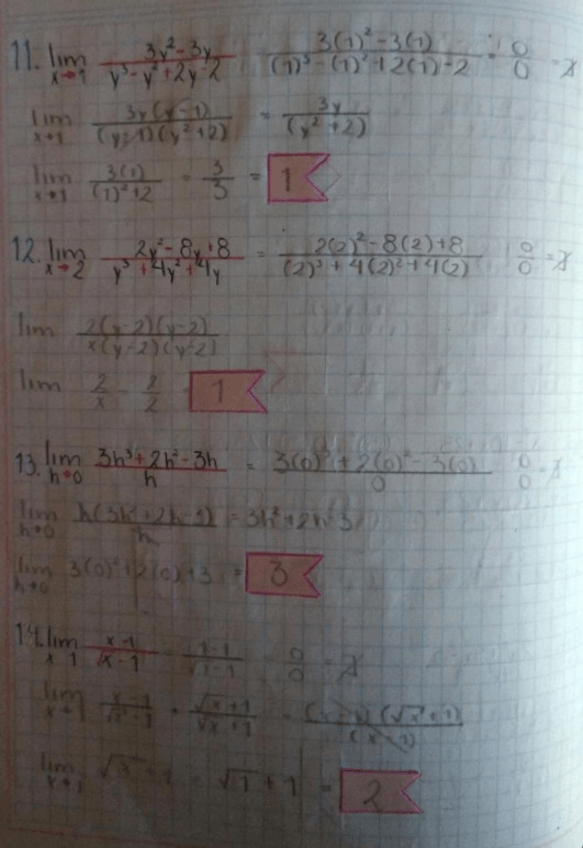 11. lim x→1 3y²-3y / y³-y²+2y-2 = 3(1)²-3(1) / (1)³-(1)²+2(1)-2 = 0/0 = ∄
lim x→1 3y(y-1) / (y-1)(y²+2) = 3y / (y²+2)
lim x→1 3(1) / (1)²+2 = 3/3 = 1
12. lim x→2 2y²-8y+8 / y³+4y²+4y = 2(2)²-8(2)+8 / (2)³+4(2)²+4(2) 0/0 = ∄
lim 2(y-2)(y-2) / x(y-2)(y-2)
lim 2/x - 2/2 1
13. lim h→0 3h³+2h²-3h / h = 3(0)³+2(0)²-3(0) / 0 0/0 = ∄
lim h→0 h(3h²+2h-3) / h = 3h²+2h-3
lim h→0 3(0)²+2(0)+3 = 3
14. lim x 1 x-1 / √x-1 = 1-1 / √1-1 0/0 = ∄
lim x→1 x-1 / √x-1 * √x+1 / √x+1 = (x-1)(√x+1) / (x-1)
lim x→1 √x+1 = √1+1 = 2